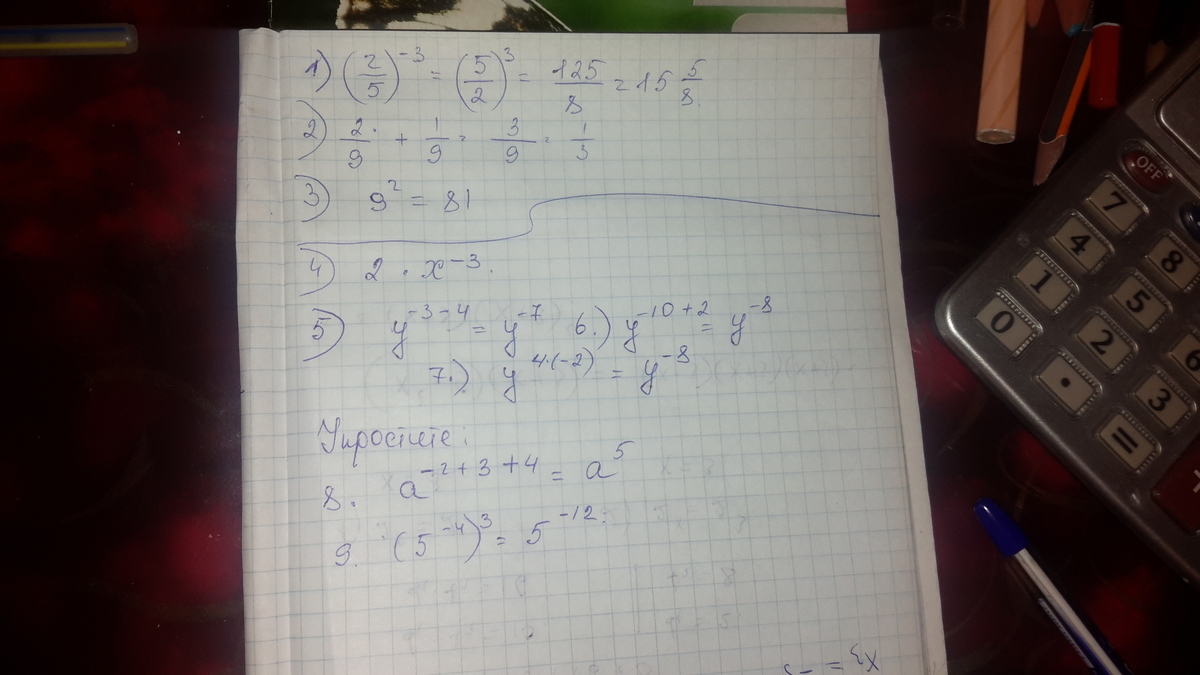 1) (2/5)⁻³ = (5/2)³ = 125/8 = 15 5/8
2) 2/9 + 1/9 = 3/9 = 1/3
3) 9² = 81
4) 2 · x⁻³.
5) y⁻³⁻⁴ = y⁻⁷ 6.) y⁻¹⁰⁺² = y⁻⁸
7.) y⁴·⁽⁻²⁾ = y⁻⁸
Упростите:
8. a⁻²⁺³⁺⁴ = a⁵
9. (5⁻⁴)³ = 5⁻¹².
OFF
7
4
8
1
5
0
2
6
·
3
=